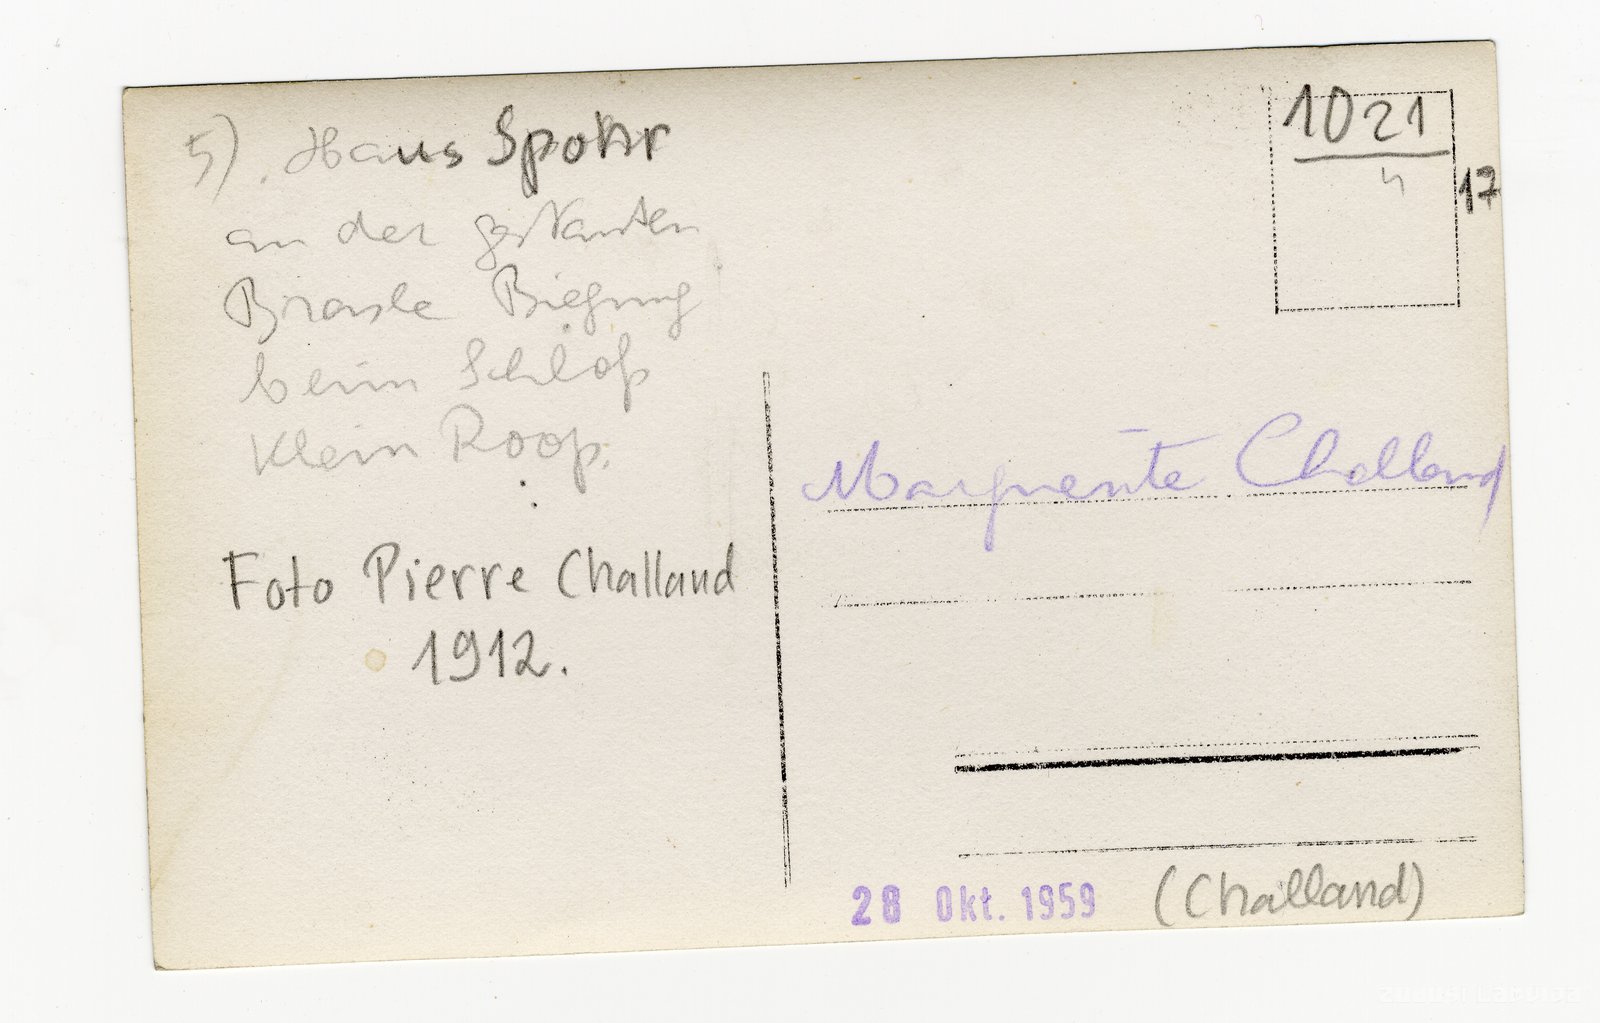 5) Haus Spohr
an der
Brasle Biegung
beim Schloß
Klein Roop.
Foto Pierre Challand
1912.
1021
4
17
Marguerite Challand
28 Okt. 1959 (Challand)
Zudusi Latvija